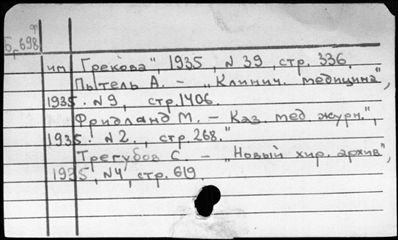 Б, 698
им Грекова", 1935, N 39, стр. 336.
Пытель А. - „Клинич. медицина",
1935. N9, стр. 1406.
Фридланд М. - Каз. мед. журн.",
1935. N2., стр. 268."
Трегубов С. - „Новый хир. архив",
1935, N4, стр. 619.